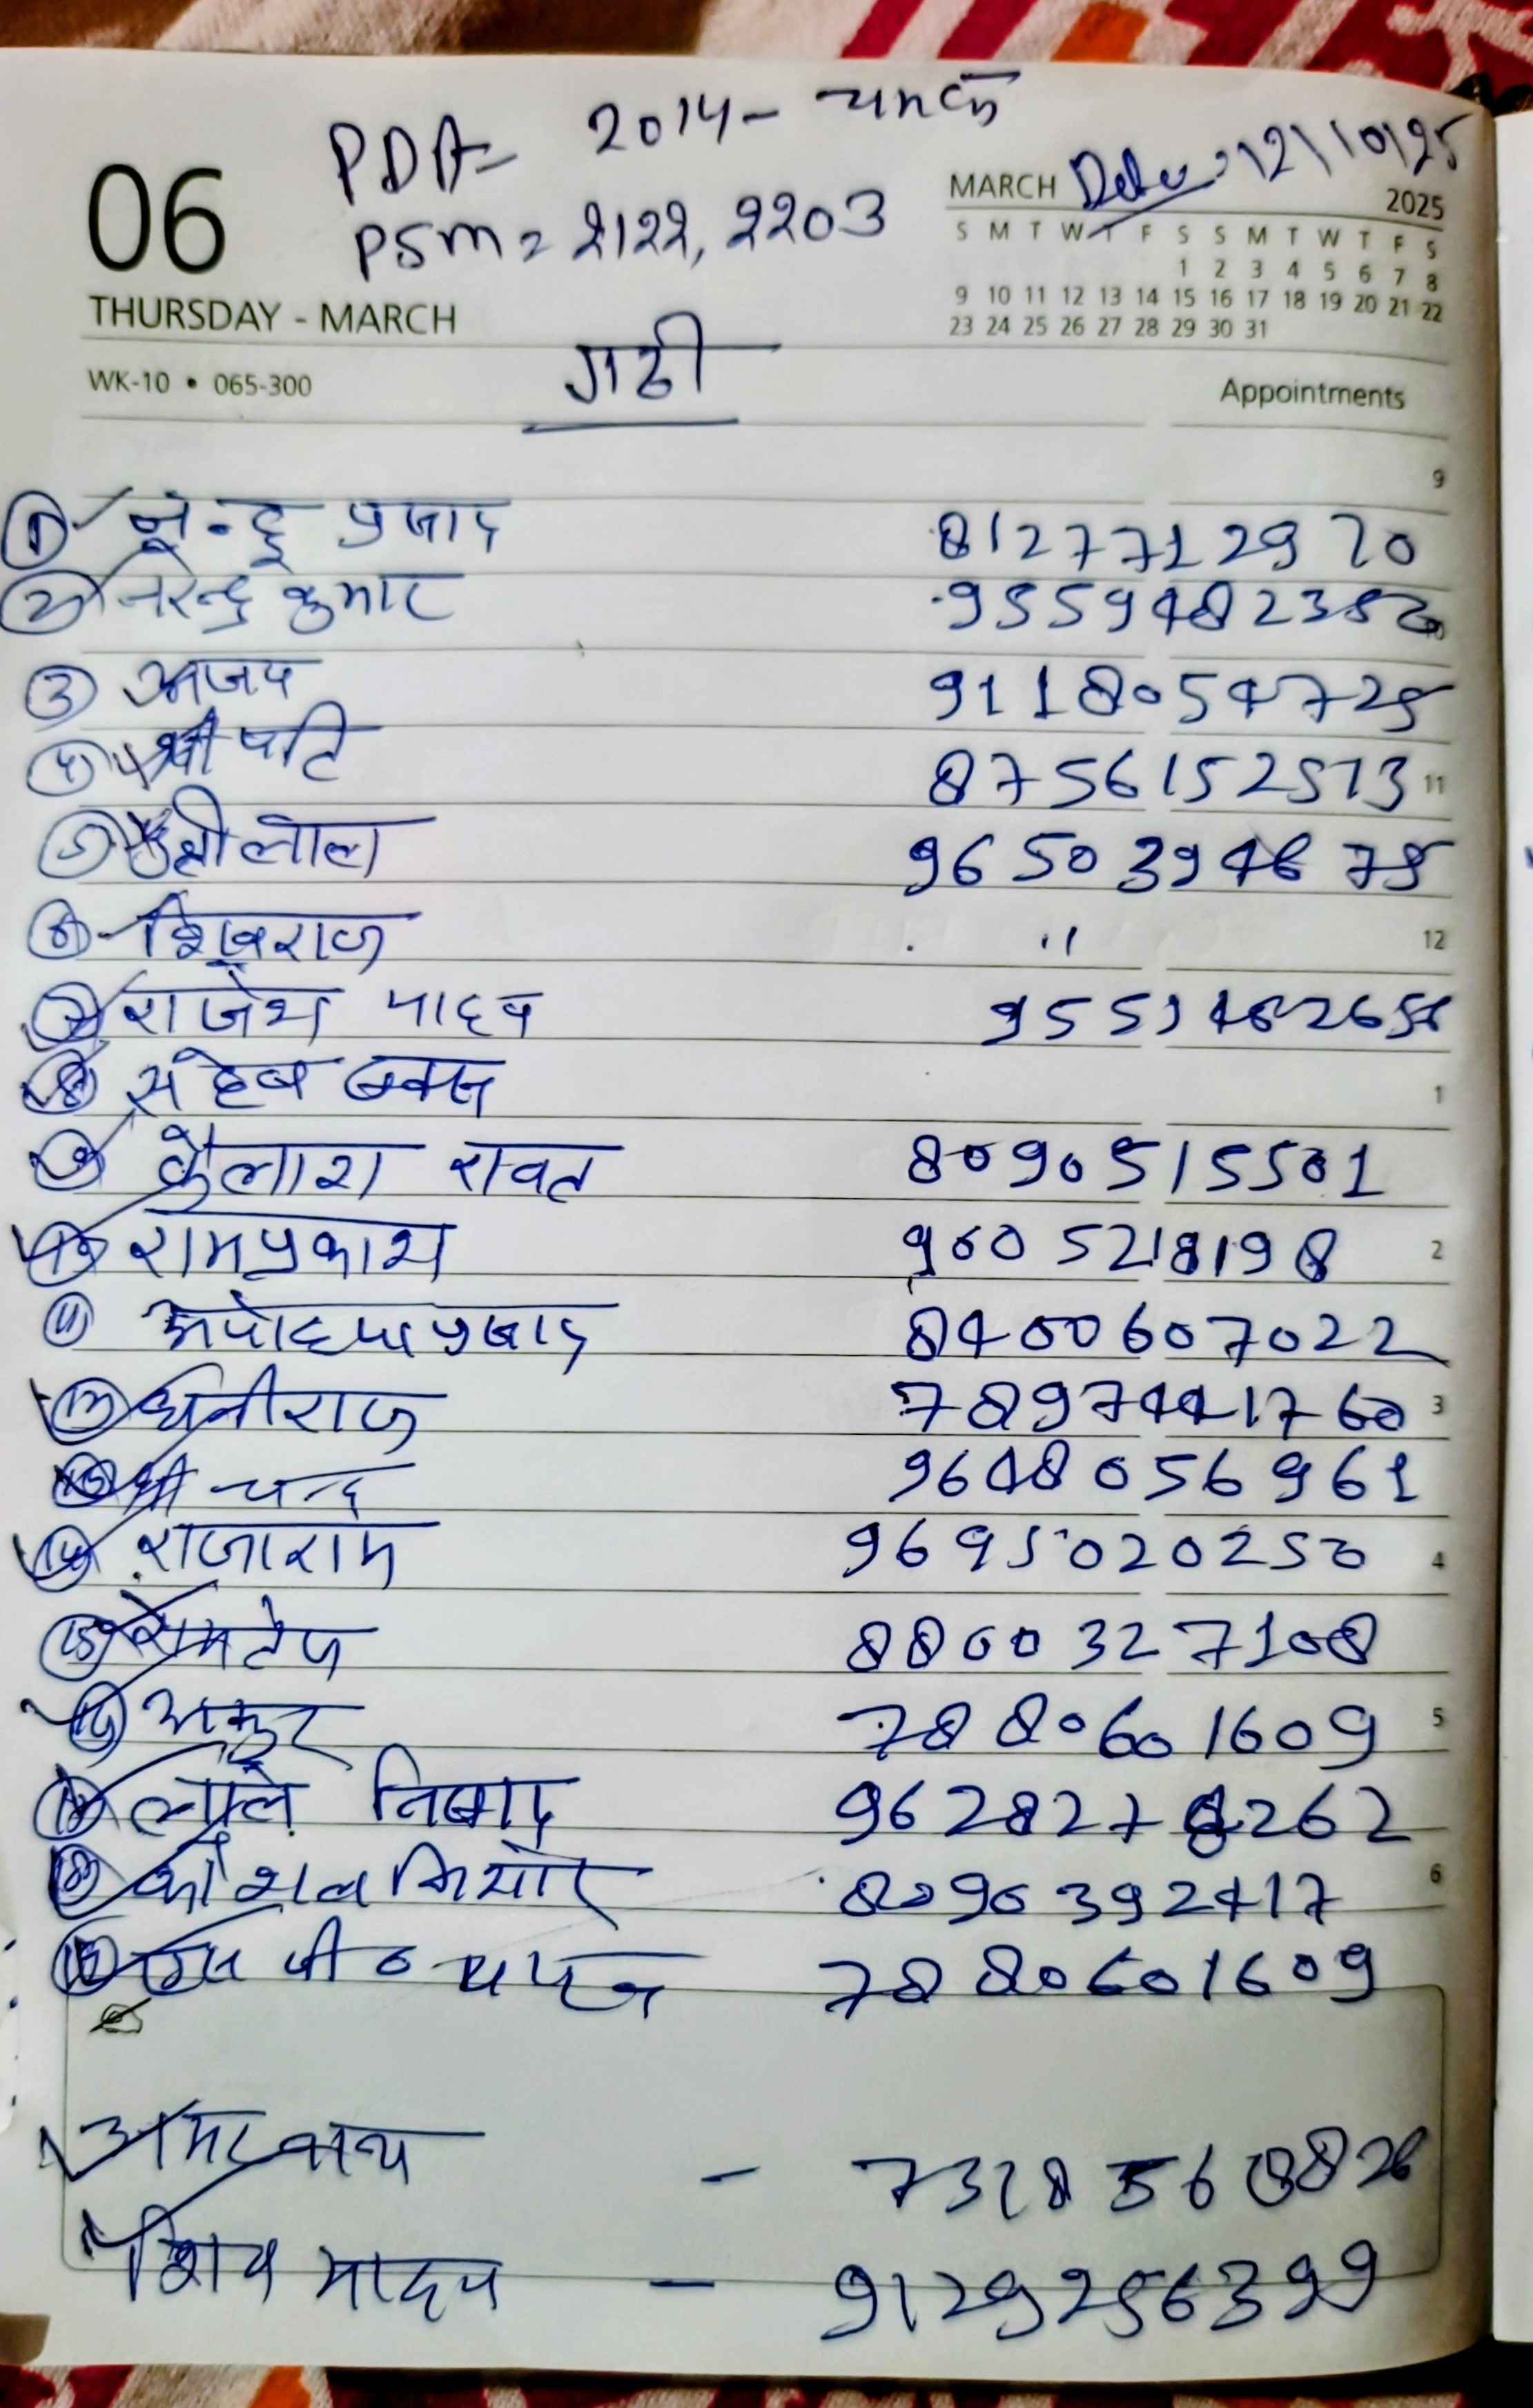 PDA = 2014 -
Date : 12/10/25
06
PSM = 2122, 2203
MARCH 2025
S M T W T F S S M T W T F S
1 2 3 4 5 6 7 8
9 10 11 12 13 14 15 16 17 18 19 20 21 22
23 24 25 26 27 28 29 30 31
THURSDAY - MARCH
गढी
WK-10 • 065-300
Appointments
9
① प्रसाद 8127712970
② नरेन्द्र कुमार 10
③ अजय 9118054725
④ श्रीपति 8756152513 11
⑤ लाल 9650394675
⑥ शिवराज " 12
⑦ राजेश यादव
⑧ साहेब बक्स 1
⑨ कैलाश रावत 8090515501
⑩ रामप्रकाश 9005218198 2
⑪ अयोध्या प्रसाद 8400607022
धनीराज 7897441760 3
श्री चन्द 9648056961
⑭ राजाराम 9695020250 4
⑮ रामतेज 8800327108
⑯ 7880601609 5
⑰ लाले निषाद
⑱ कौशल किशोर 8090392417 6
⑲ 7880601609
- 7318560826
शिव यादव - 9129256399